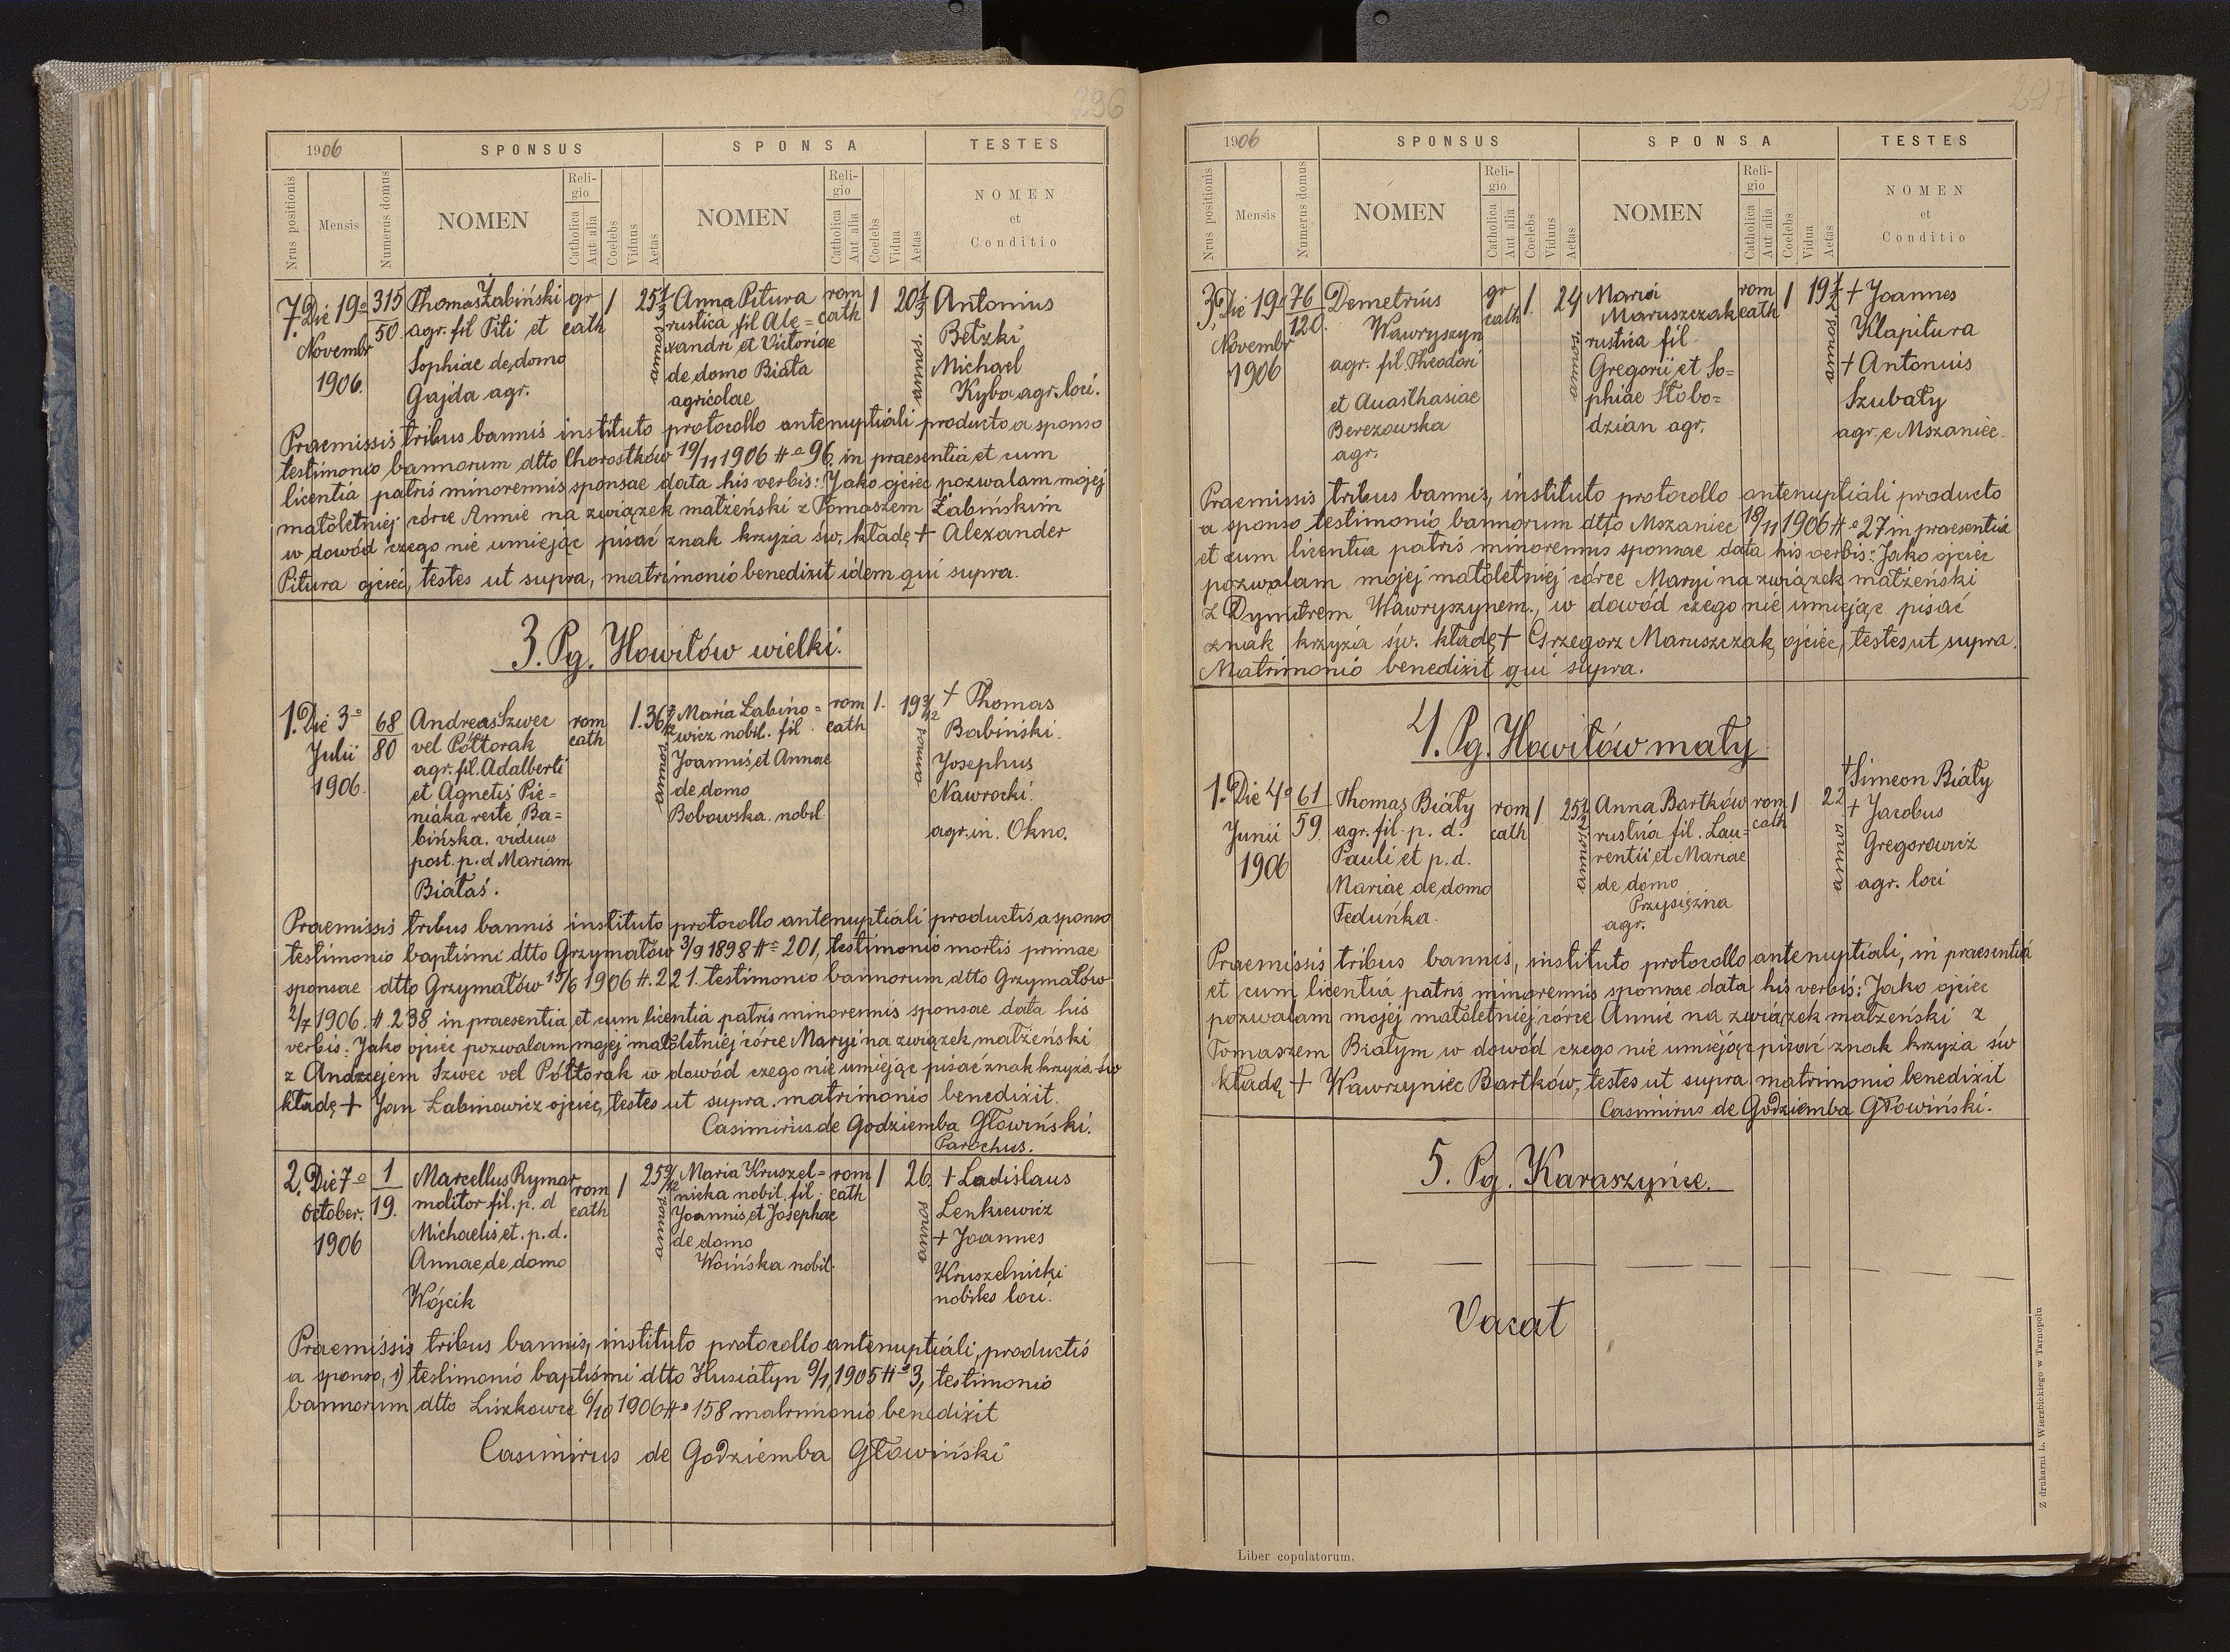 296
1906
SPONSUS
SPONSA
TESTES
Nrus positionis
Mensis
Numerus domus
NOMEN
Religio
Catholica
Aut alia
Coelebs
Viduus
Aetas
NOMEN
Religio
Catholica
Aut alia
Coelebs
Vidua
Aetas
NOMEN
et
Conditio
7. Die 19º
Novembr
1906.
315
50.
Thomas Żabiński
agr. fil Titi et
Sophiae de domo
Gajda agr.
gr
cath
1
25 1/3
annos
Anna Pitura
rustica fil Ale=
xandri et Victoriae
de domo Biała
agricolae
rom
cath
1
20 1/3
annos.
Antonius
Betzki
Michael
Kyba agr. loci.
Praemissis tribus bannis instituto protocollo antenuptiali producto a sponso
testimonio bannorum dtto Chorostków 19/11 1906 # º 96. in praesentia et cum
licentia patris minorennis sponsae data his verbis: Jako ojciec pozwalam mojej
małoletniej córce Annie na związek małżeński z Tomaszem Żabińskim
w dowód czego nie umiejąc pisać znak krzyża św. kładę + Alexander
Pitura ojciec, testes ut supra, matrimonio benedixit idem qui supra.
3. Pg. Howiłów wielki.
1. Die 3º
Julii
1906.
68
80
Andreas Szwec
vel Półtorak
agr. fil. Adalberti
et Agnetis Pie=
niąka recte Ba=
bińska. viduus
post. p. d Mariam
Białaś.
rom
cath
1. 36 7/12
annos
Maria Łabino=
wicz nobil. fil.
Joannis et Annae
de domo
Bobowska. nobil
rom
cath
1.
19 3/12
annos
+ Thomas
Babiński.
Josephus
Nawrocki.
agr. in. Okno.
Praemissis tribus bannis instituto protocollo antenuptiali productis a sponso
testimonio baptismi dtto Grzymałów 3/9 1898 # = 201, testimonio mortis primae
sponsae dtto Grzymałów 19/6 1906 #. 221. testimonio bannorum dtto Grzymałów
2/7 1906. #. 238 in praesentia et cum licentia patris minorennis sponsae data his
verbis: Jako ojciec pozwalam mojej małoletniej córce Maryi na związek małżeński
z Andrzejem Szwec vel Półtorak w dowód czego nie umiejąc pisać znak krzyża św
kładę + Jan Łabinowicz ojciec, testes ut supra. matrimonio benedixit.
Casimirius de Godziemba Głowiński.
Parochus.
2. Die 7º
October.
1906
1
19.
Marcellus Rymar
molitor fil. p. d
Michaelis et. p. d.
Annae de domo
Wójcik
rom
cath
1
25 9/12
annos
Maria Kruszel=
nicka nobil. fil.
Joannis et Josephae
de domo
Woińska nobil.
rom
cath
1
26.
annos
+ Ladislaus
Lenkiewicz
+ Joannes
Kruszelnicki
nobiles loci.
Praemissis tribus bannis, instituto protocollo antenuptiali, productis
a sponso, 1) testimonio baptismi dtto Husiatyn 9/1, 1905 # º 3, testimonio
bannorum dtto Liczkowce 6/10 1906 # º 158 matrimonio benedixit
Casimirus de Godziemba Głowiński
297
1906
SPONSUS
SPONSA
TESTES
Nrus positionis
Mensis
Numerus domus
NOMEN
Religio
Catholica
Aut alia
Coelebs
Viduus
Aetas
NOMEN
Religio
Catholica
Aut alia
Coelebs
Vidua
Aetas
NOMEN
et
Conditio
3. Die 19º
Novembr
1906
76
120.
Demetrius
Wawryszyn
agr. fil. Theodori
et Anasthasiae
Berezowska
agr.
gr
cath
1.
24
annos.
Maria
Maruszczak
rustica fil.
Gregorii et So=
phiae Słobo=
dzian agr.
rom
cath
1
19 1/2
annos
+ Joannes
Klapitura
+ Antonius
Szubaty
agr. e Mszaniec.
Praemissis tribus bannis, instituto protocollo antenuptiali producto
a sponso testimonio bannorum dtto Mszaniec 18/11 1906 # º 27 in praesentia
et cum licentia patris minorennis sponsae data his verbis: Jako ojciec
pozwalam mojej małoletniej córce Maryi na związek małżeński
z Dymitrem Wawryszynem., w dowód czego nie umiejąc pisać
znak krzyża św. kładę + Grzegorz Maruszczak, ojciec, testes ut supra.
Matrimonio benedixit qui supra.
4. Pg. Howiłów mały.
1. Die 4º
Junii
1906
61
59.
Thomas Biały
agr. fil. p. d.
Pauli et p. d.
Mariae de domo
Feduńka.
rom
cath
1.
25 1/2
annos
Anna Bartków
rustica fil. Lau=
rentii et Mariae
de domo
Przysiężna
agr.
rom
cath
1
22
annos.
+ Simeon Biały
+ Jacobus
Gregorowicz
agr. loci
Praemissis tribus bannis, instituto protocollo antenuptiali, in praesentia
et cum licentia patris minorennis sponsae data his verbis: Jako ojciec
pozwalam mojej małoletniej córce Annie na związek małżeński z
Tomaszem Białym w dowód czego nie umiejąc pisać znak krzyża św
kładę + Wawrzyniec Bartków, testes ut supra matrimonio benedixit
Casimirus de Godziemba Głowiński.
5. Pg. Karaszyńce.
Vacat
Liber copulatorum.
Z drukarni L. Wierzbickiego w Tarnopolu